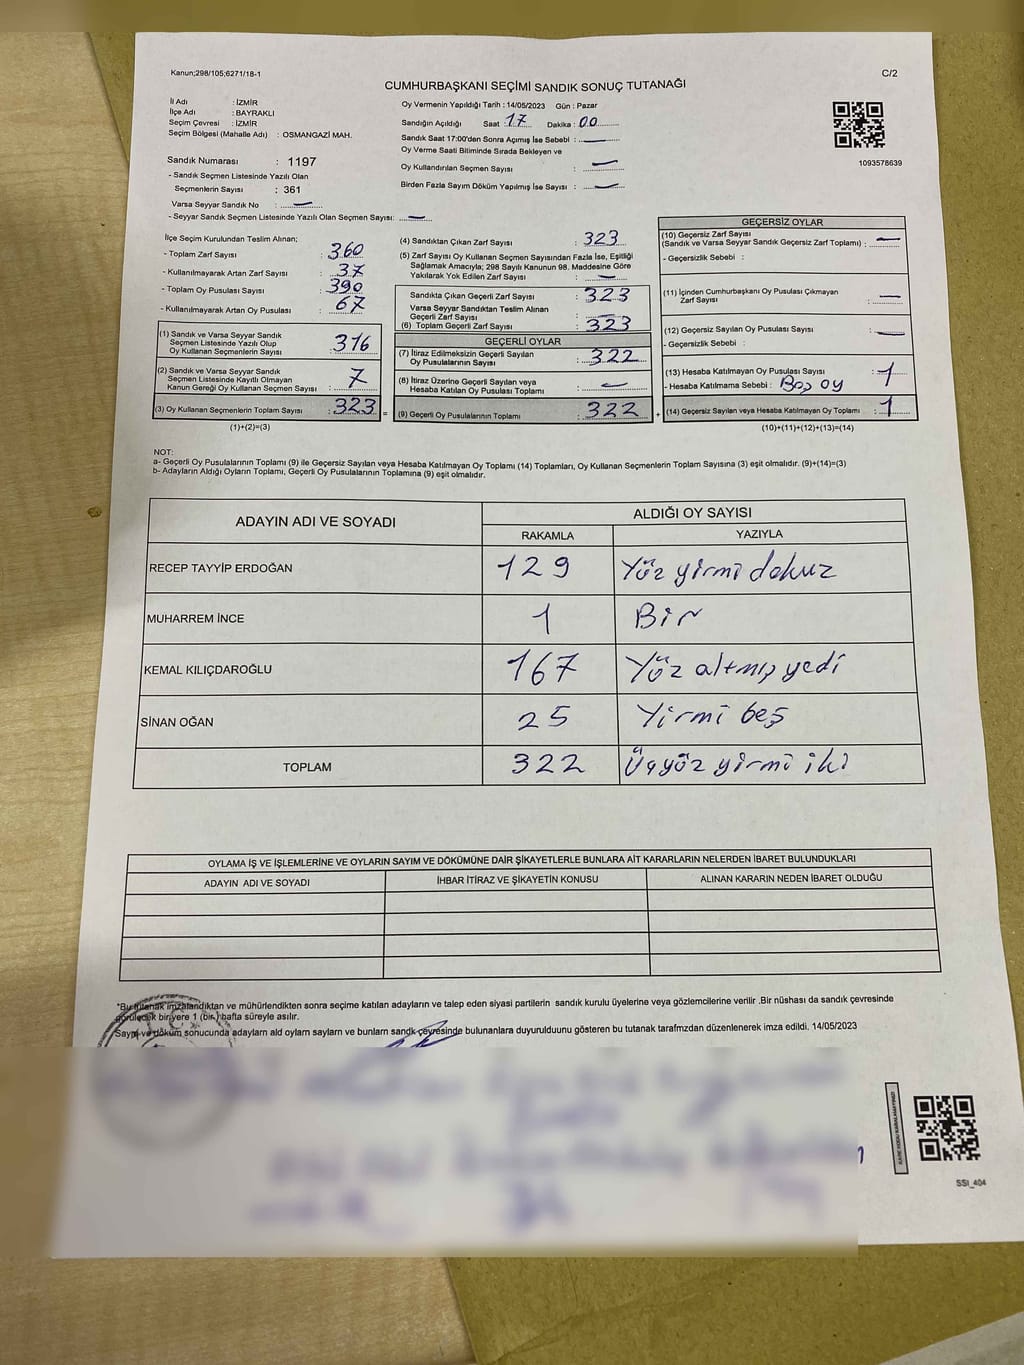 Kanun;298/105;6271/18-1
C/2
CUMHURBAŞKANI SEÇİMİ SANDIK SONUÇ TUTANAĞI
İl Adı : İZMİR
İlçe Adı : BAYRAKLI
Seçim Çevresi : İZMİR
Seçim Bölgesi (Mahalle Adı) : OSMANGAZİ MAH.
Sandık Numarası : 1197
- Sandık Seçmen Listesinde Yazılı Olan
Seçmenlerin Sayısı : 361
Varsa Seyyar Sandık No : —
- Seyyar Sandık Seçmen Listesinde Yazılı Olan Seçmen Sayısı: —
Oy Vermenin Yapıldığı Tarih : 14/05/2023 Gün : Pazar
Sandığın Açıldığı Saat 17 Dakika : 00
Sandık Saat 17:00'den Sonra Açımış İse Sebebi : —
Oy Verme Saati Bitiminde Sırada Bekleyen ve
Oy Kullandırılan Seçmen Sayısı : —
Birden Fazla Sayım Döküm Yapılmış İse Sayısı : —
1093578639
İlçe Seçim Kurulundan Teslim Alınan;
- Toplam Zarf Sayısı : 360
- Kullanılmayarak Artan Zarf Sayısı : 37
- Toplam Oy Pusulası Sayısı : 390
- Kullanılmayarak Artan Oy Pusulası : 67
(1) Sandık ve Varsa Seyyar Sandık
Seçmen Listesinde Yazılı Olup
Oy Kullanan Seçmenlerin Sayısı : 316
(2) Sandık ve Varsa Seyyar Sandık
Seçmen Listesinde Kayıtlı Olmayan
Kanun Gereği Oy Kullanan Seçmen Sayısı : 7
(3) Oy Kullanan Seçmenlerin Toplam Sayısı : 323 =
(1)+(2)=(3)
(4) Sandıktan Çıkan Zarf Sayısı : 323
(5) Zarf Sayısı Oy Kullanan Seçmen Sayısından Fazla İse, Eşitliği
Sağlamak Amacıyla; 298 Sayılı Kanunun 98. Maddesine Göre
Yakılarak Yok Edilen Zarf Sayısı : —
Sandıkta Çıkan Geçerli Zarf Sayısı : 323
Varsa Seyyar Sandıktan Teslim Alınan
Geçerli Zarf Sayısı : —
(6) Toplam Geçerli Zarf Sayısı : 323
GEÇERLİ OYLAR
(7) İtiraz Edilmeksizin Geçerli Sayılan
Oy Pusulalarının Sayısı : 322
(8) İtiraz Üzerine Geçerli Sayılan veya
Hesaba Katılan Oy Pusulası Toplamı : —
(9) Geçerli Oy Pusulalarının Toplamı : 322 +
GEÇERSİZ OYLAR
(10) Geçersiz Zarf Sayısı
(Sandık ve Varsa Seyyar Sandık Geçersiz Zarf Toplamı) : —
- Geçersizlik Sebebi :
(11) İçinden Cumhurbaşkanı Oy Pusulası Çıkmayan
Zarf Sayısı : —
(12) Geçersiz Sayılan Oy Pusulası Sayısı : —
- Geçersizlik Sebebi :
(13) Hesaba Katılmayan Oy Pusulası Sayısı : 1
- Hesaba Katılmama Sebebi : Boş oy
(14) Geçersiz Sayılan veya Hesaba Katılmayan Oy Toplamı : 1
(10)+(11)+(12)+(13)=(14)
NOT:
a- Geçerli Oy Pusulalarının Toplamı (9) ile Geçersiz Sayılan veya Hesaba Katılmayan Oy Toplamı (14) Toplamları, Oy Kullanan Seçmenlerin Toplam Sayısına (3) eşit olmalıdır. (9)+(14)=(3)
b- Adayların Aldığı Oyların Toplamı, Geçerli Oy Pusulalarının Toplamına (9) eşit olmalıdır.
ADAYIN ADI VE SOYADI ALDIĞI OY SAYISI
RAKAMLA YAZIYLA
RECEP TAYYİP ERDOĞAN 129 Yüz yirmi dokuz
MUHARREM İNCE 1 Bir
KEMAL KILIÇDAROĞLU 167 Yüz altmış yedi
SİNAN OĞAN 25 Yirmi beş
TOPLAM 322 Üçyüz yirmi iki
OYLAMA İŞ VE İŞLEMLERİNE VE OYLARIN SAYIM VE DÖKÜMÜNE DAİR ŞİKAYETLERLE BUNLARA AİT KARARLARIN NELERDEN İBARET BULUNDUKLARI
ADAYIN ADI VE SOYADI İHBAR İTİRAZ VE ŞİKAYETİN KONUSU ALINAN KARARIN NEDEN İBARET OLDUĞU
*Bu tutanak imzalandıktan ve mühürlendikten sonra seçime katılan adayların ve talep eden siyasi partilerin sandık kurulu üyelerine veya gözlemcilerine verilir .Bir nüshası da sandık çevresinde
görülecek bir yere 1 (bir) hafta süreyle asılır.
Sayp ve döküm sonucunda adayların ald oylam sayların ve bunların sandk çevresinde bulunanlara duyurulduunu gösteren bu tutanak tarafmzdan düzenlenerek imza edildi. 14/05/2023
T.C.
SSI_404